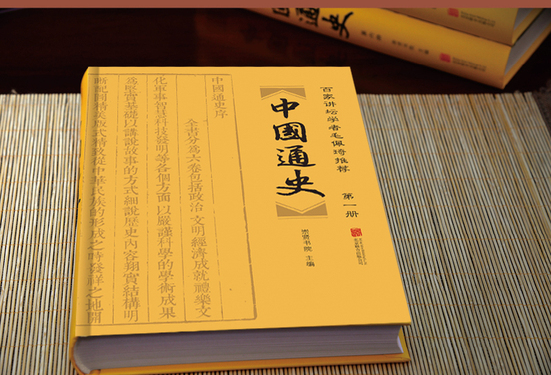 中國通史
百家讲坛学者毛佩琦推荐
中國通史
第一册
崇贤书院 主编
中國通史序
全書分爲六卷包括政治文明經濟成就禮樂文
化軍事智慧科技發明等各個方面以嚴謹科學的學術成果
爲堅實基礎以講說故事的方式細說歷史內容翔實結構明
晰配圖精美版式精致從中華民族的形成之時發祥之地開